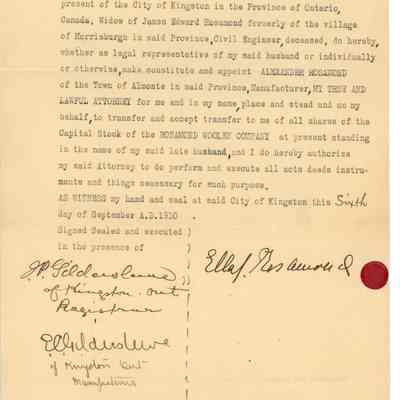 present of the City of Kingston in the Province of Ontario,
Canada, Widow of James Edward Rosamond formerly of the village
of Morrisburgh in said Province, Civil Engineer, deceased, do hereby,
whether as legal representative of my said husband or individually
or otherwise, make, constitute and appoint ALEXANDER ROSAMOND
of the Town of Almonte in said Province, Manufacturer, MY TRUE AND
LAWFUL ATTORNEY for me and in my name, place and stead and on my
behalf, to transfer and accept transfer to me of all shares of the
Capital Stock of the ROSAMOND WOOLEN COMPANY at present standing
in the name of my said late husband, and I do hereby authorize
my said Attorney to do perform and execute all acts deeds instru-
ments and things necessary for such purpose.
AS WITNESS my hand and seal at said City of Kingston this Sixth
day of September A.D. 1910
Signed Sealed and executed
in the presence of
J.P. Gildersleeve
of Kingston Ont
Registrar
Ella J. Rosamond
Gildersleeve
of Kingston Ont